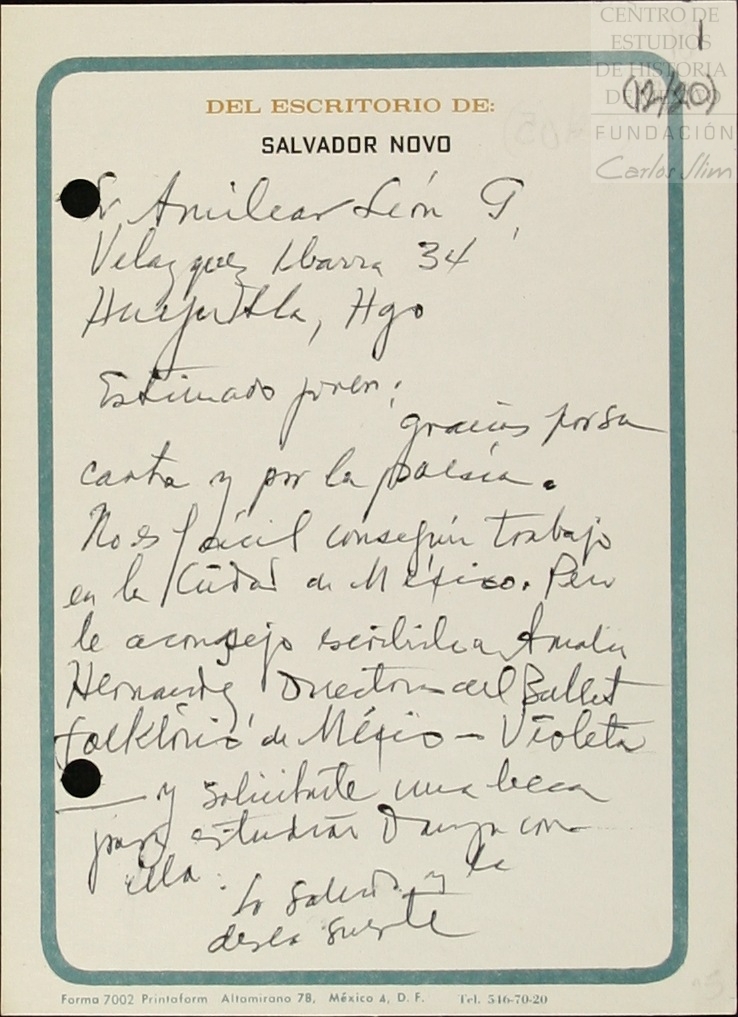 CENTRO DE
ESTUDIOS
DE HISTORIA
DE MÉXICO
FUNDACIÓN
Carlos Slim
1
(12/20)
DEL ESCRITORIO DE:
SALVADOR NOVO
Sr Amilcar León G,
Velazquez Ibarra 34
Huejutla, Hgo
Estimado joven:
gracias por su
carta y por la poesía.
No es fácil conseguir trabajo
en la Ciudad de México. Pero
le aconsejo escribirle a Amalia
Hernández Directora del Ballet
folklórico de México - Violeta
— y solicitarle una beca
para estudiar Danza con
ella.
Lo saluda y le
desea suerte
Forma 7002 Printaform Altamirano 78, México 4, D. F. Tel. 546-70-20